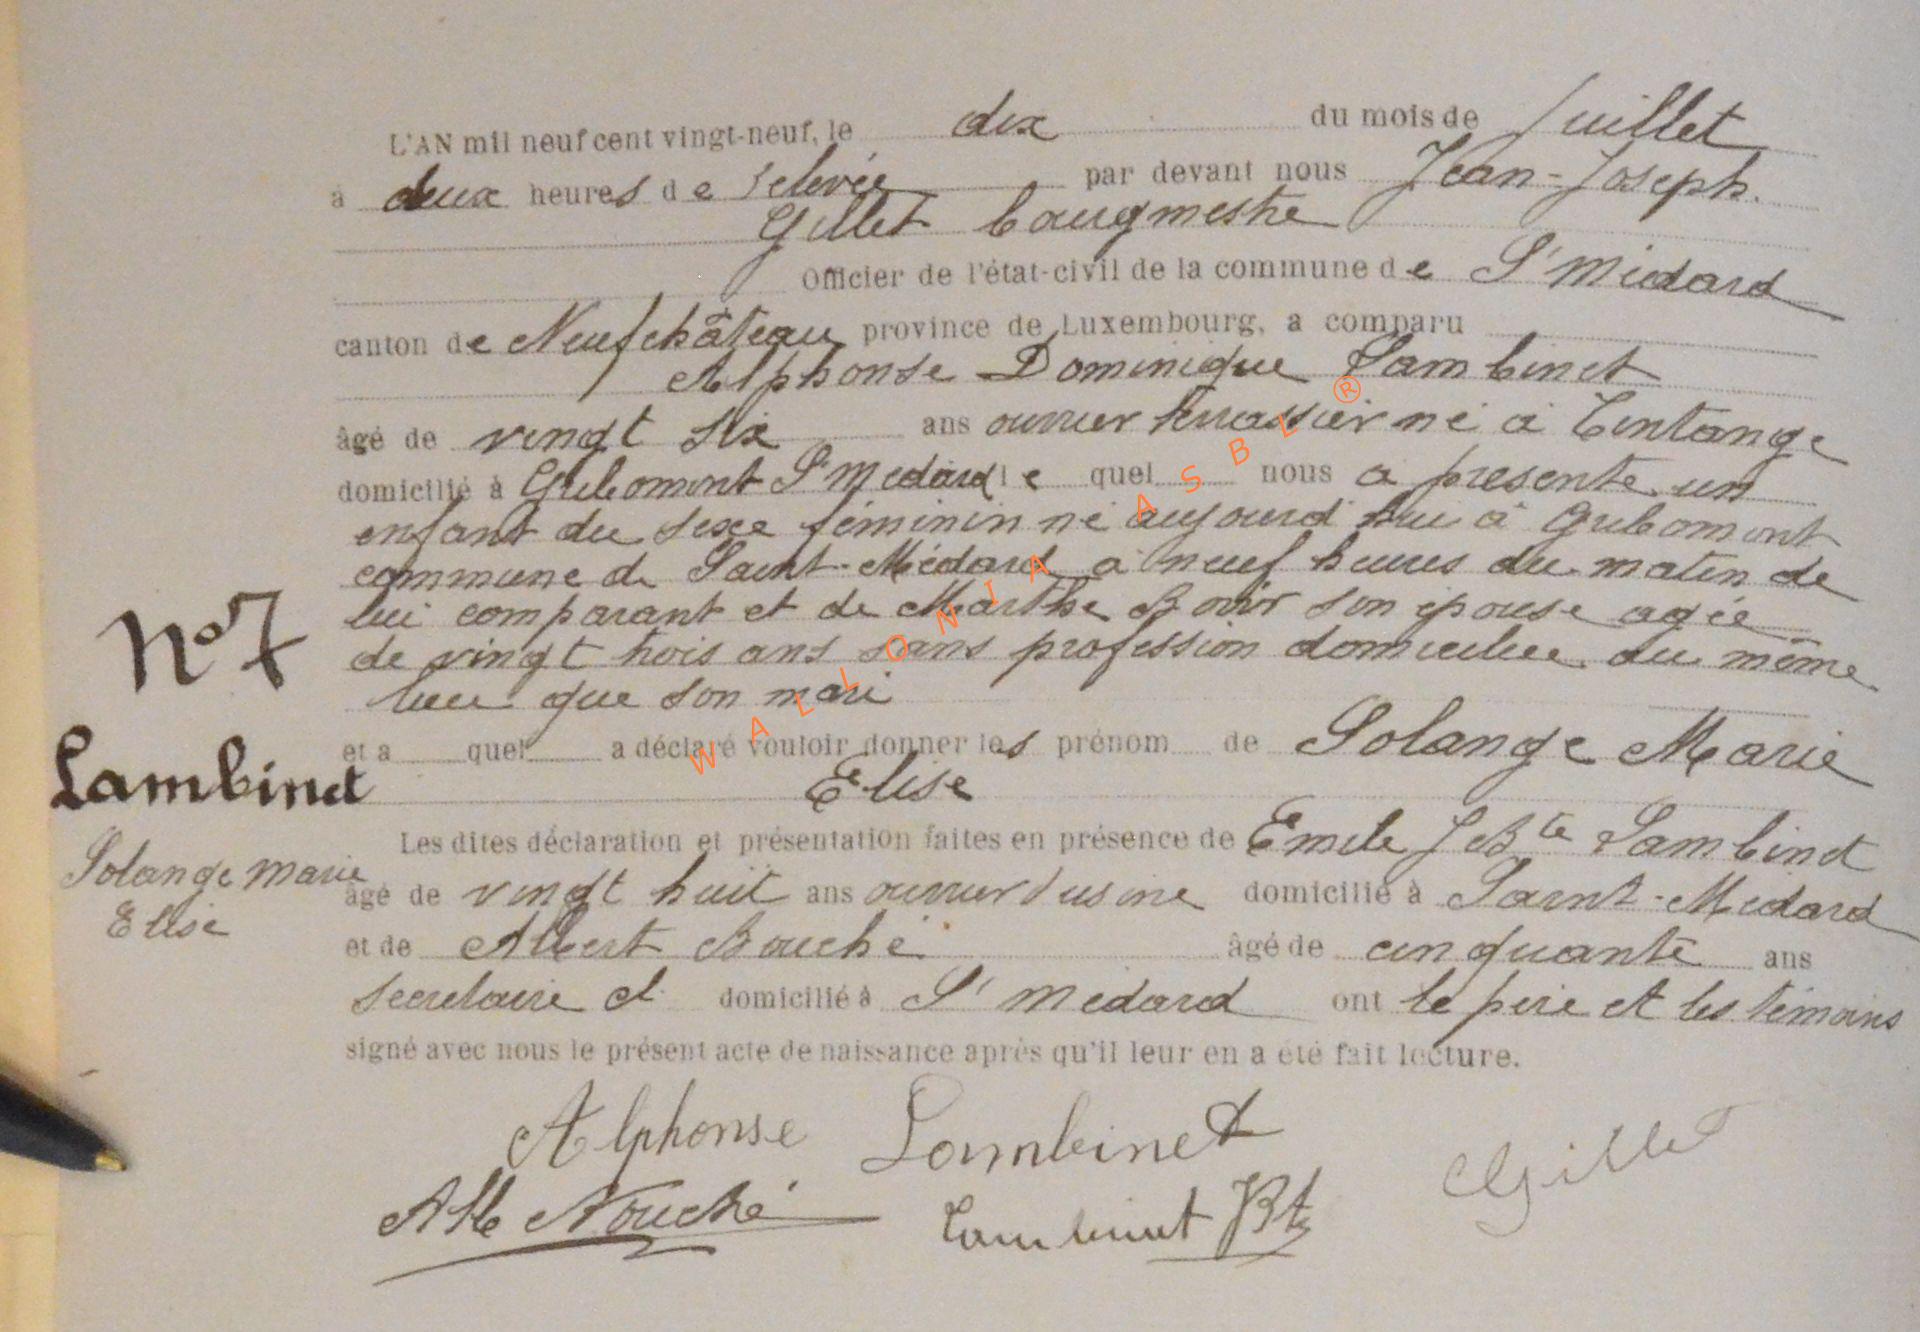 L'AN mil neuf cent vingt-neuf, le dix du mois de Juillet
à deux heures de relevée par devant nous Jean-Joseph
Gillet bourgmestre
Officier de l'état-civil de la commune de St Médard
canton de Neufchâteau province de Luxembourg, a comparu
Alphonse Dominique Lambinet
âgé de vingt six ans ouvrier terrassier né à Tintange
domicilié à Gribomont St Médard le quel nous a présenté un
enfant du sexe féminin né aujourd'hui à Gribomont
commune de Saint-Médard à neuf heures du matin de
lui comparant et de Marthe son épouse agée
de vingt trois ans sans profession domiciliée au même
lieu que son mari
et a quel a déclaré vouloir donner les prénom de Solange Marie
Elise
Les dites déclaration et présentation faites en présence de Emile J Bte Lambinet
âgé de vingt huit ans ouvrier d'usine domicilié à Saint-Médard
et de Albert Bouché âgé de cinquante ans
secrétaire cl domicilié à St Médard ont le père et les témoins
signé avec nous le présent acte de naissance après qu'il leur en a été fait lecture.
N° 7
Lambinet
Solange Marie
Elise
Alphonse Lambinet
Gillet
Bouché
Lambinet JBte
WALLONIA ASBL ®